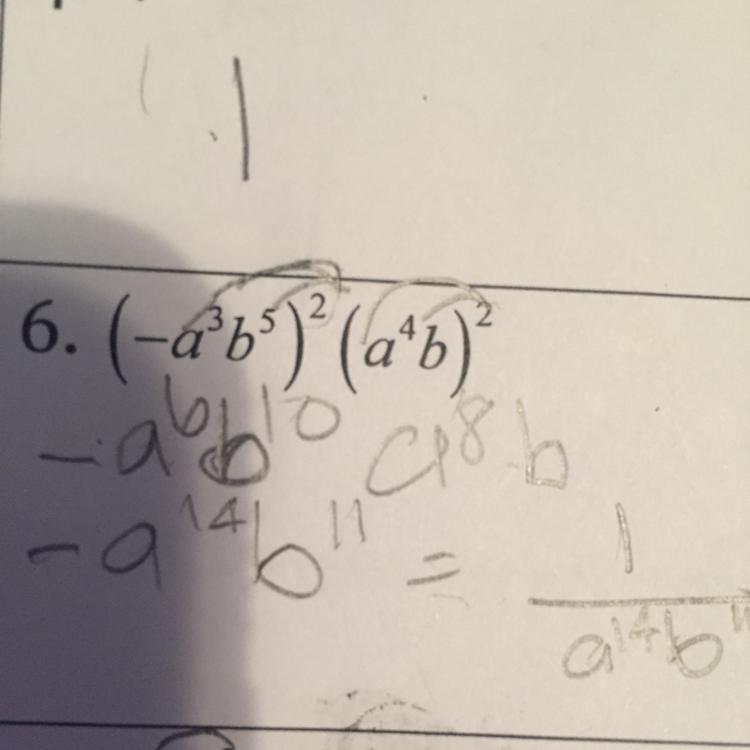 1
6. (-a³b⁵)² (a⁴b)²
-a⁶b¹⁰ a⁸ b
-a¹⁴b¹¹ = 1/a¹⁴b¹¹